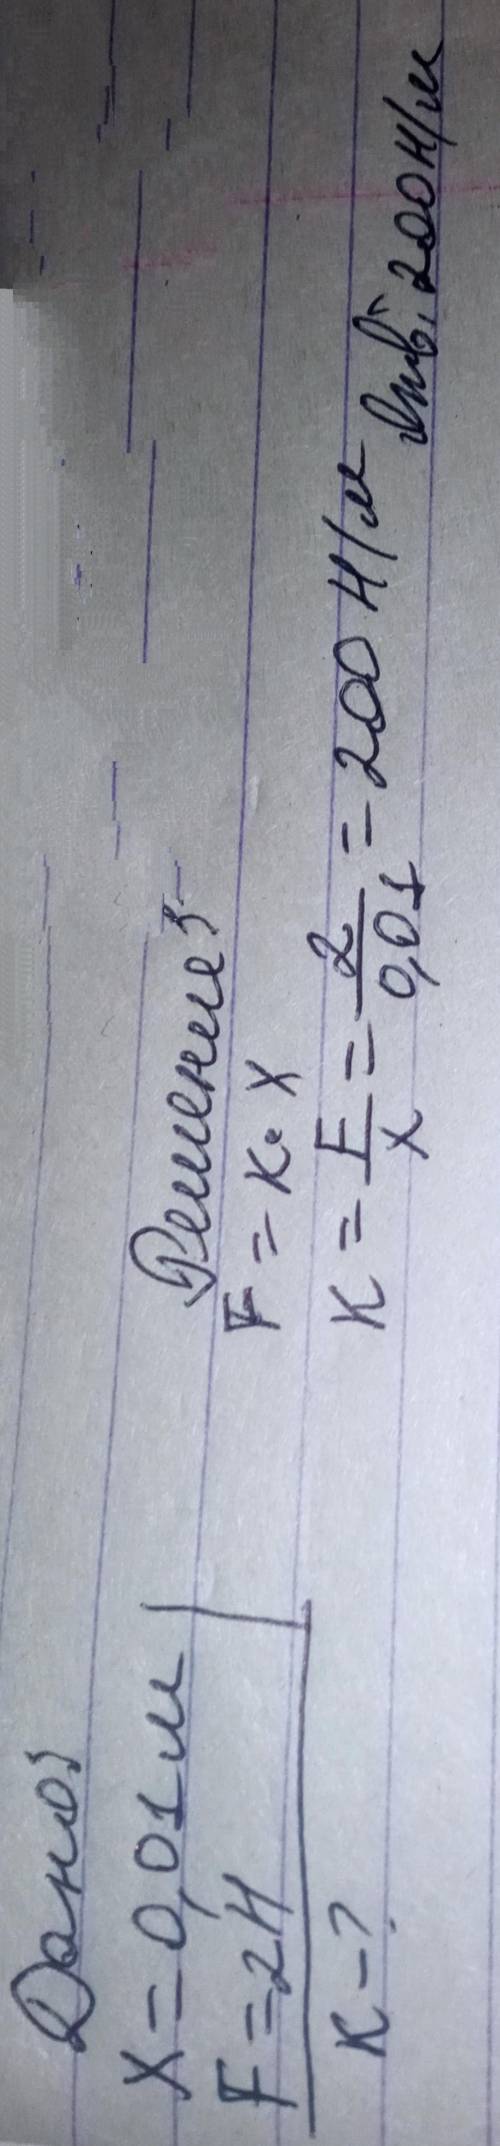 Дано:
X = 0,01 м
F = 2 Н
K - ?
Решение:
F = K · X
K = F/X = 2/0,01 = 200 Н/м
Отв: 200 Н/м